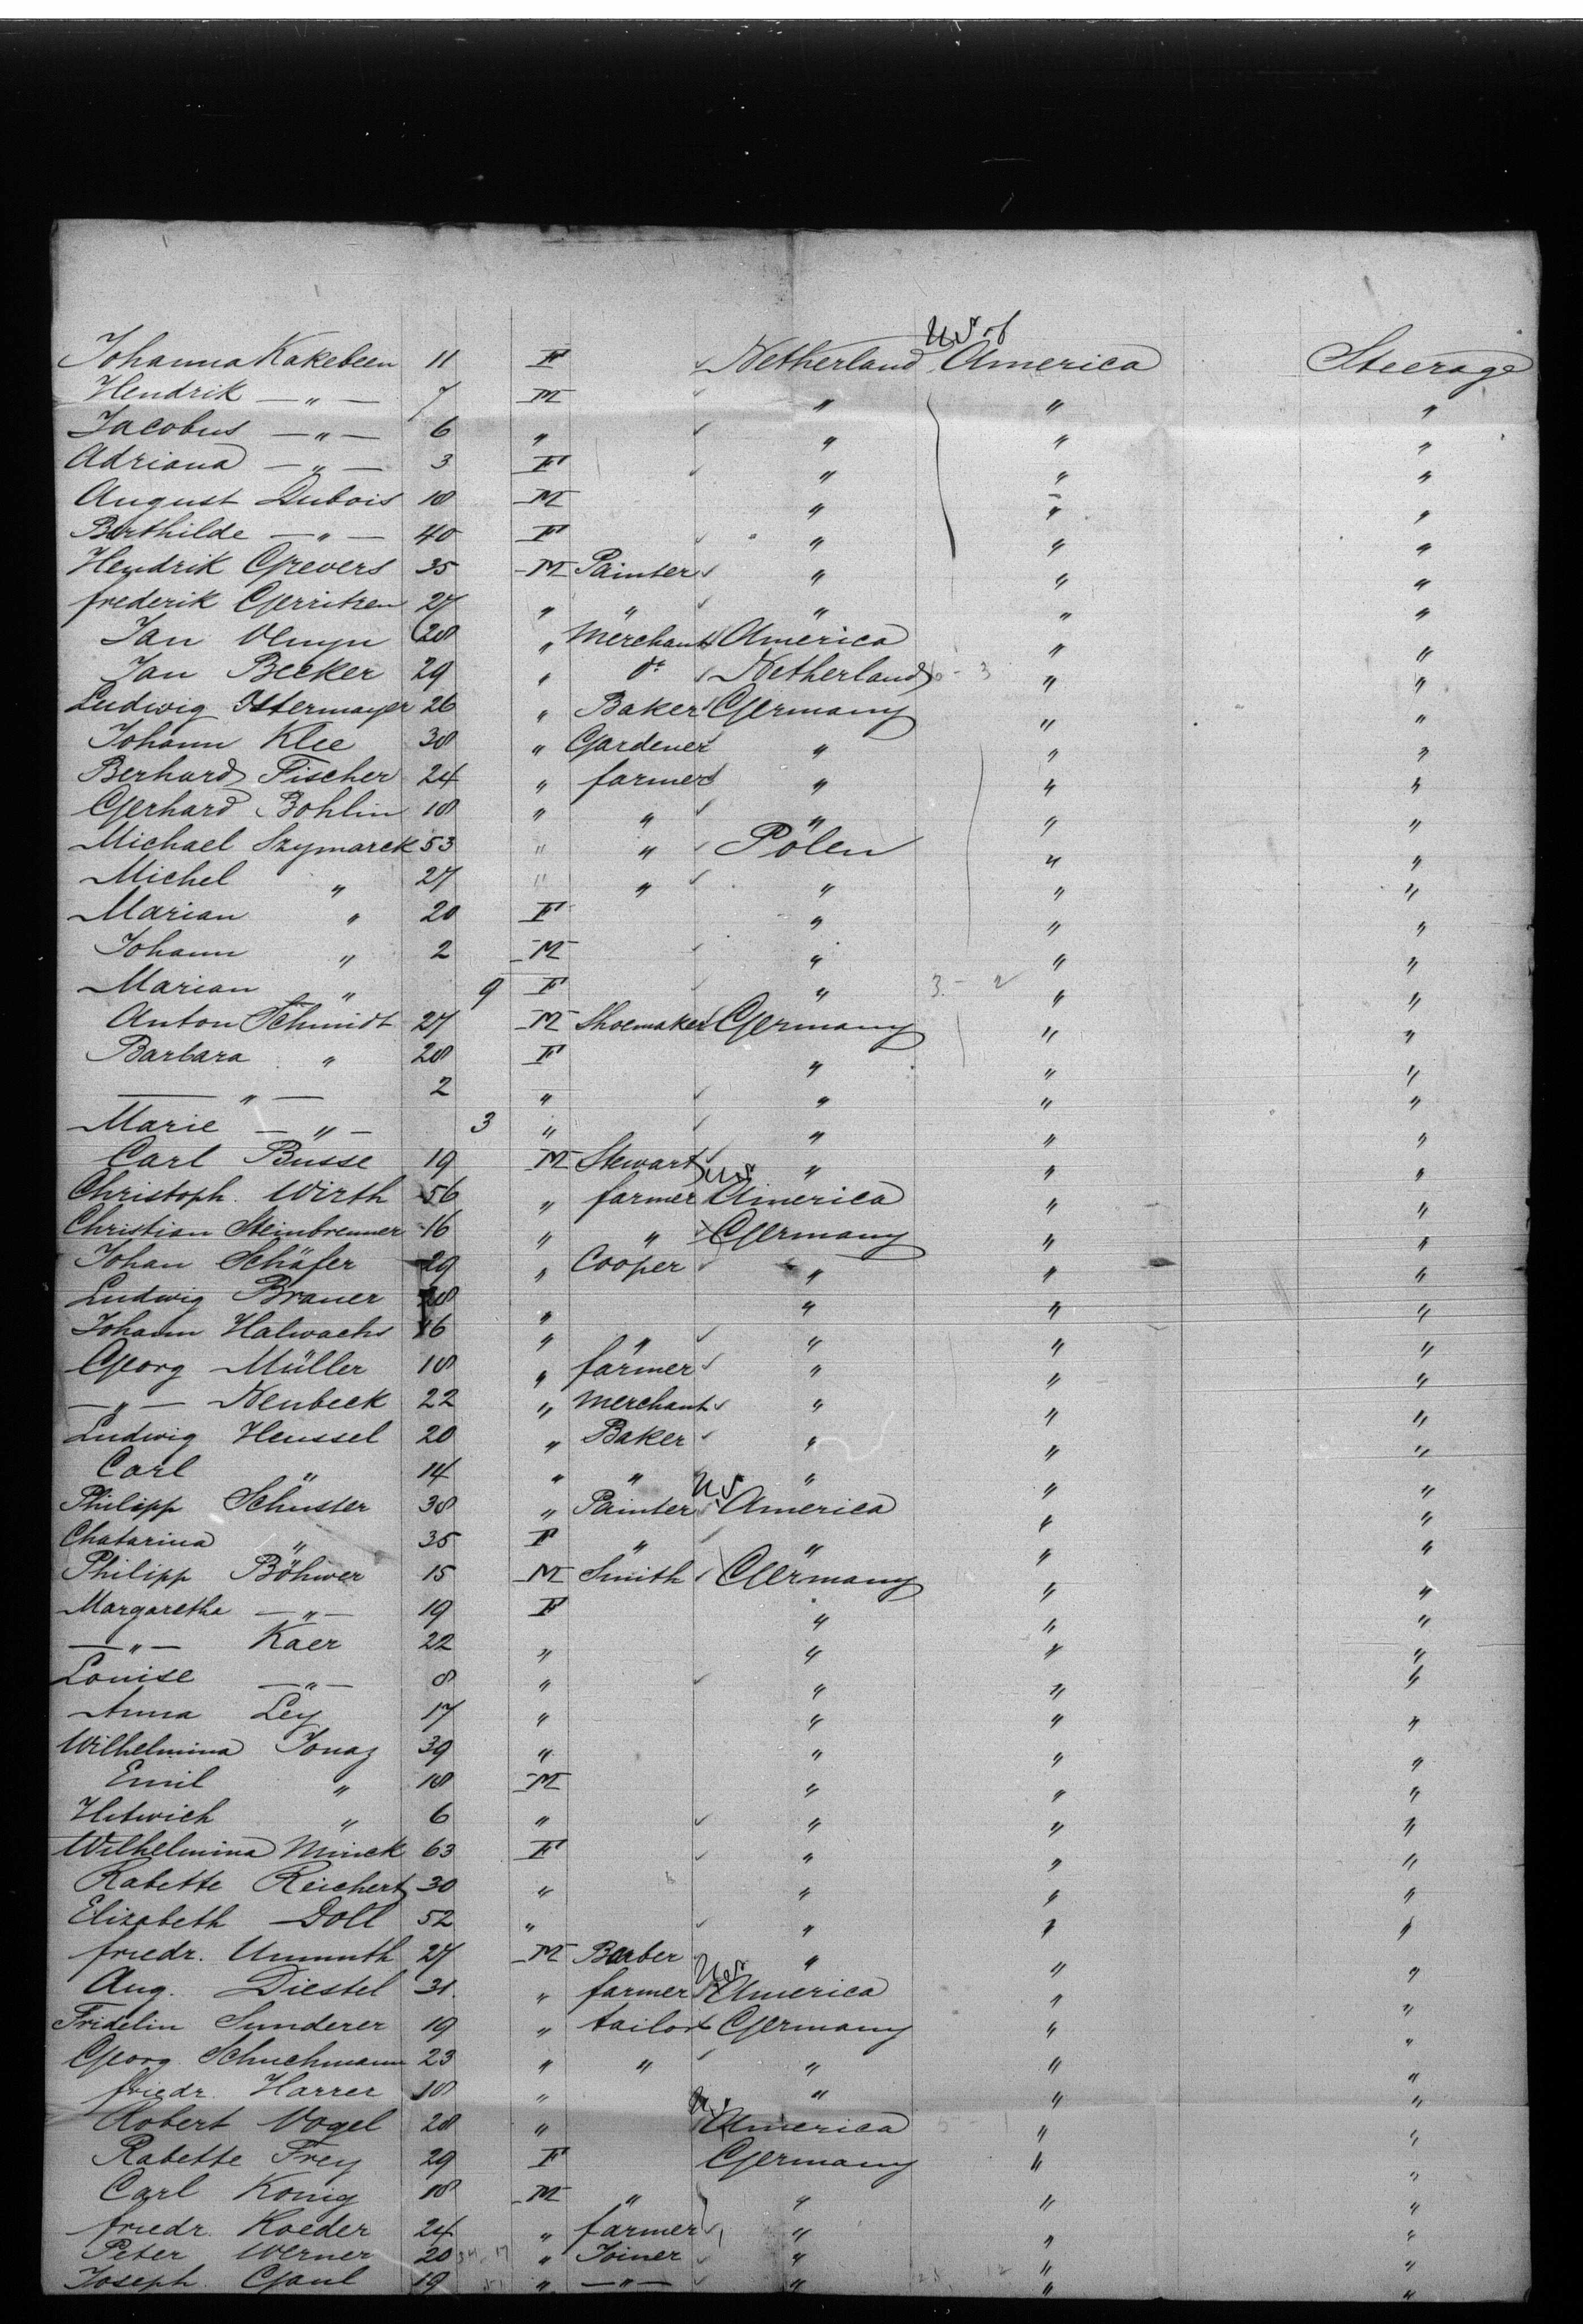 US of
Johanna Kakebeen 11 F Netherland America Steerage
Hendrik —"— 7 M " " "
Jacobus —"— 6 " " " "
Adriana —"— 3 F " " "
August Dubois 18 M " " "
Berthilde —"— 40 F " " "
Hendrik Grevers 35 M Painter " " "
frederik Gerritzen 27 " " " " "
Jan 28 " Merchant America " "
Jan Becker 29 " do Netherland " "
Ludwig Istermayer 26 " Baker Germany " "
Johann Klee 38 " Gardener " " "
Berhard Fischer 24 " farmer " " "
Gerhard Bohlin 18 " " " " "
Michael Szymarek 53 " " Polen " "
Michel " 27 " " " " "
Marian " 20 F " " "
Johann " 2 M " " "
Marian " 9 F " 3 - 2 " "
Anton Schmidt 27 M Shoemaker Germany " "
Barbara " 28 F " " "
—"— 2 " " " "
Marie —"— 3 " " " "
Carl Busse 19 M Stewart " " "
Christoph. Wirth 56 " farmer US America " "
Christian Steinbrenner 16 " " Germany " "
Johan Schäfer 29 " Cooper " " "
Ludwig Brauer 28 " " " "
Johann Halwachs 16 " " " " "
Georg Müller 18 " farmer " " "
—"— Neubeck 22 " Merchant " " "
Ludwig Heussel 20 " Baker " " "
Carl " 14 " " " " "
Philipp Schuster 38 " Painter US America " "
Chatarina " 35 F " " " "
Philipp Böhwer 15 M Smith Germany " "
Margaretha —"— 19 F " " "
—"— Kaer 22 " " " "
Louise —"— 8 " " " "
Anna Ley 17 " " " "
Wilhelmina Jonaz 39 " " " "
Emil " 18 M " " "
Hetwich " 6 " " " "
Wilhelmina Minck 63 F " " "
Rabette Reichert 30 " " " "
Elizabeth Doll 52 " " " "
friedr. Unmuth 27 M Barber " " "
Aug. Diestel 31. " farmer US America " "
Fridelin Sunderer 19 " tailor Germany " "
Georg Schuchmann 23 " " " " "
friedr. Harrer 18 " " " "
Robert Vogel 28 " America " "
Rabette Frey 29 F Germany " "
Carl König 18 M " " " "
friedr. Roeder 24 " farmer " " "
Peter Werner 20 " Joiner " " "
Joseph Gaul 19 " —"— " " "